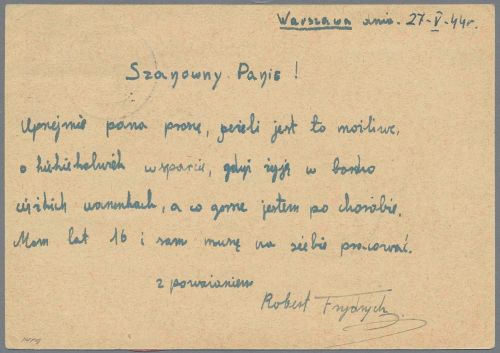 Warszawa dnia. 27-V-44r.
Szanowny Panie!
Uprzejmie pana proszę, jeżeli jest to możliwe,
o jakiekolwiek wsparcie, gdyż żyję w bardzo
ciężkich warunkach, a co gorsze jestem po chorobie.
Mam lat 16 i sam muszę na siebie pracować.
z poważaniem
Robert Frydrych.